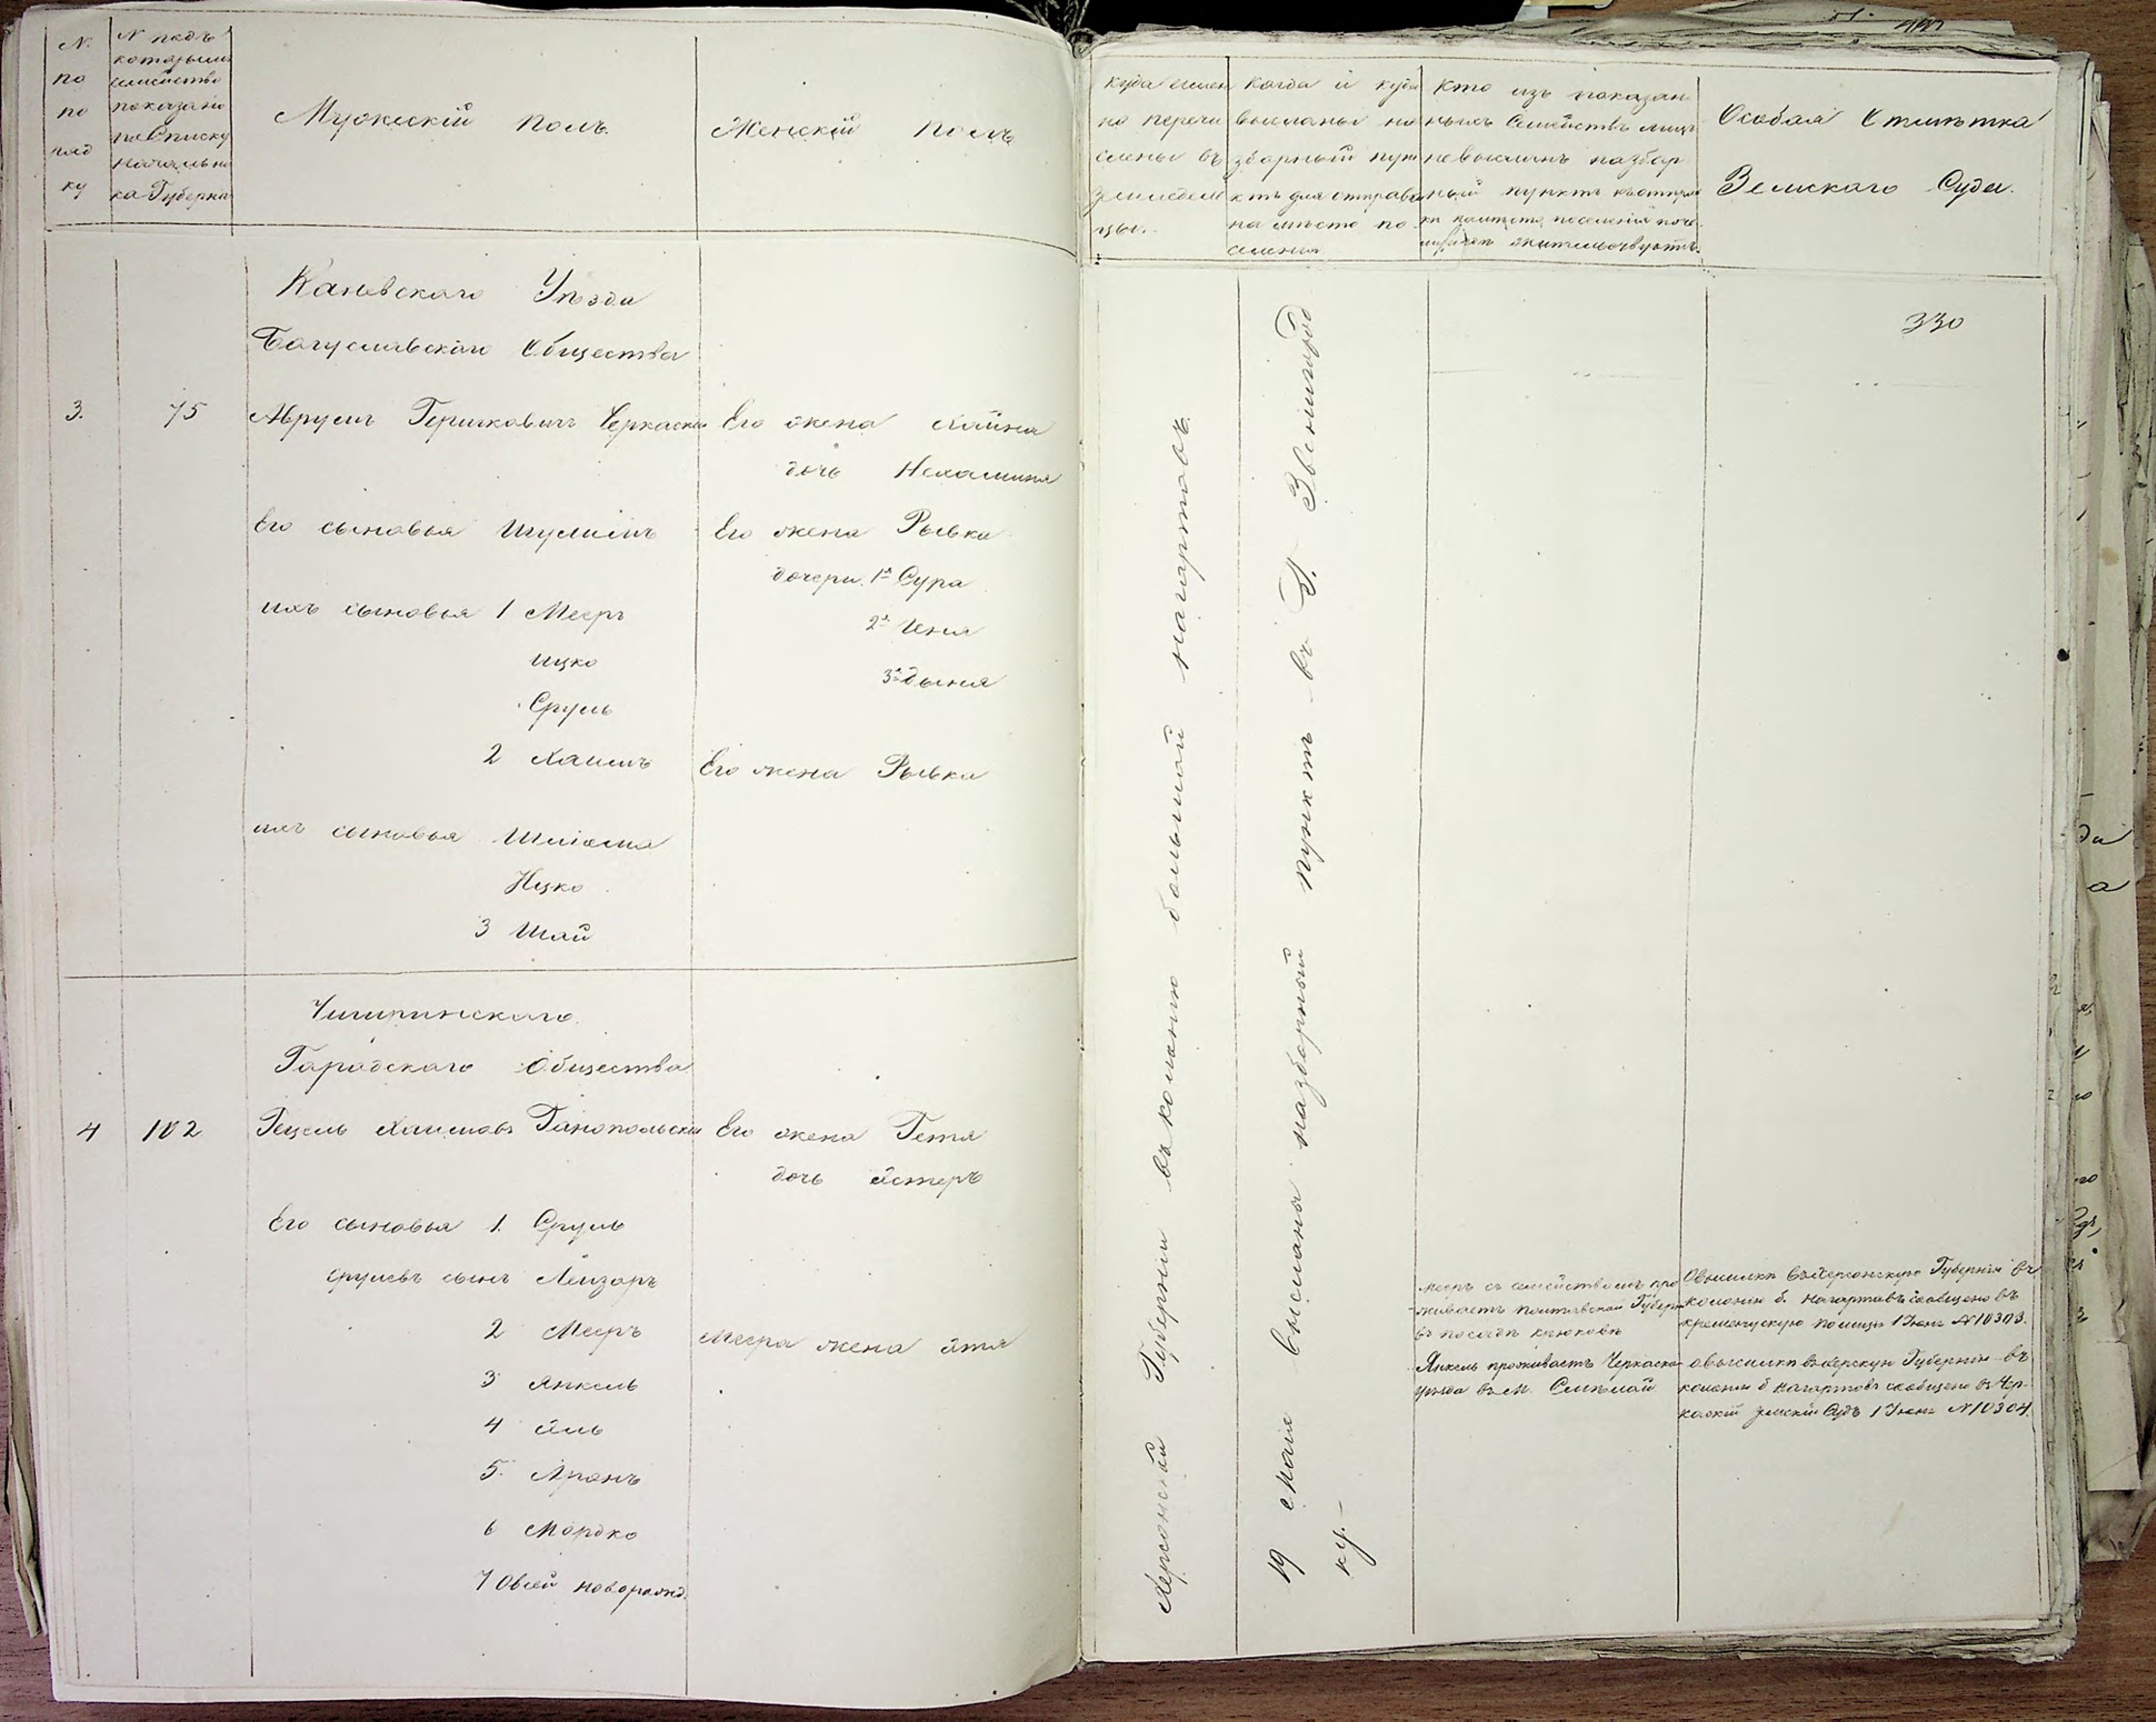 №.
по
по
ряд
ку
№ подъ
которымъ
семейство
показано
по Списку
Начальни
ка Губерніи
Мужескій полъ.
Женскій полъ
Каневскаго Уѣзда
Богуславскаго Общества
3. 75 Аврумъ Гершковичъ Черкаскій Его жена Хайна
дочь Нехамина
Его сыновья Шулимъ Его жена Рывка
дочери. 1я Сура
ихъ сыновья 1 Меер
2я Ченя
Ицко
3я Дыня
Сруль
2 Хаимъ Его жена Рывка
ихъ сыновья Шліома
Ицко
3 Шай
Чигиринскаго
Гарадскаго Общества
4 102 Гецель Хаимовъ Ганопольскій Его жена Гетя
дочь Естеръ
Его сыновья 1. Сруль
Срулевъ сынъ Лейзоръ
2 Мееръ Меера жена Етя
3 Янкель
4 Ель
5. Аронъ
6 Мордко
7 Овсей наворожд.
куда имен
но перечи
слены въ
земледел
цы.
Когда и куда
высланы на
зборный пун
ктъ для отправки
на мѣсто по
селенія
Кто изъ показан
ныхъ Семействъ лицъ
невысланъ назбор
ный пунктъ къотправ
ки намѣсто поселенія
жительствуютъ.
Особая Отмѣтка
Земскаго Суда.
330
Херсонской Губерніи въ колонію большой Нагартавъ
19 Мая высланы назборный пунктъ въ Г. Звенигород
ку.-
Мееръ съ семействомъ про
живаетъ Полтавской Губерн
въ посадѣ Крюковѣ
Овысилки въ Херсонскую Губернію въ
колонію б. Нагартавъ сообщено въ
кременчускую полицію 1 Іюня №10303.
Янкель проживаетъ Черкаска
уѣзда въ М. Смѣлой
овысилки въ Херскую Губернію въ
колонію б Нагартовъ сообщено въ Чер-
каскій земскій Судъ 1 Іюня №10304.